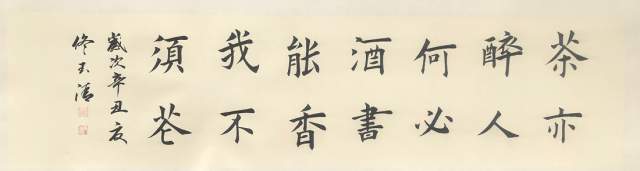 茶亦
醉人
何必
酒書
能香
我不
須花
歲次辛丑夏